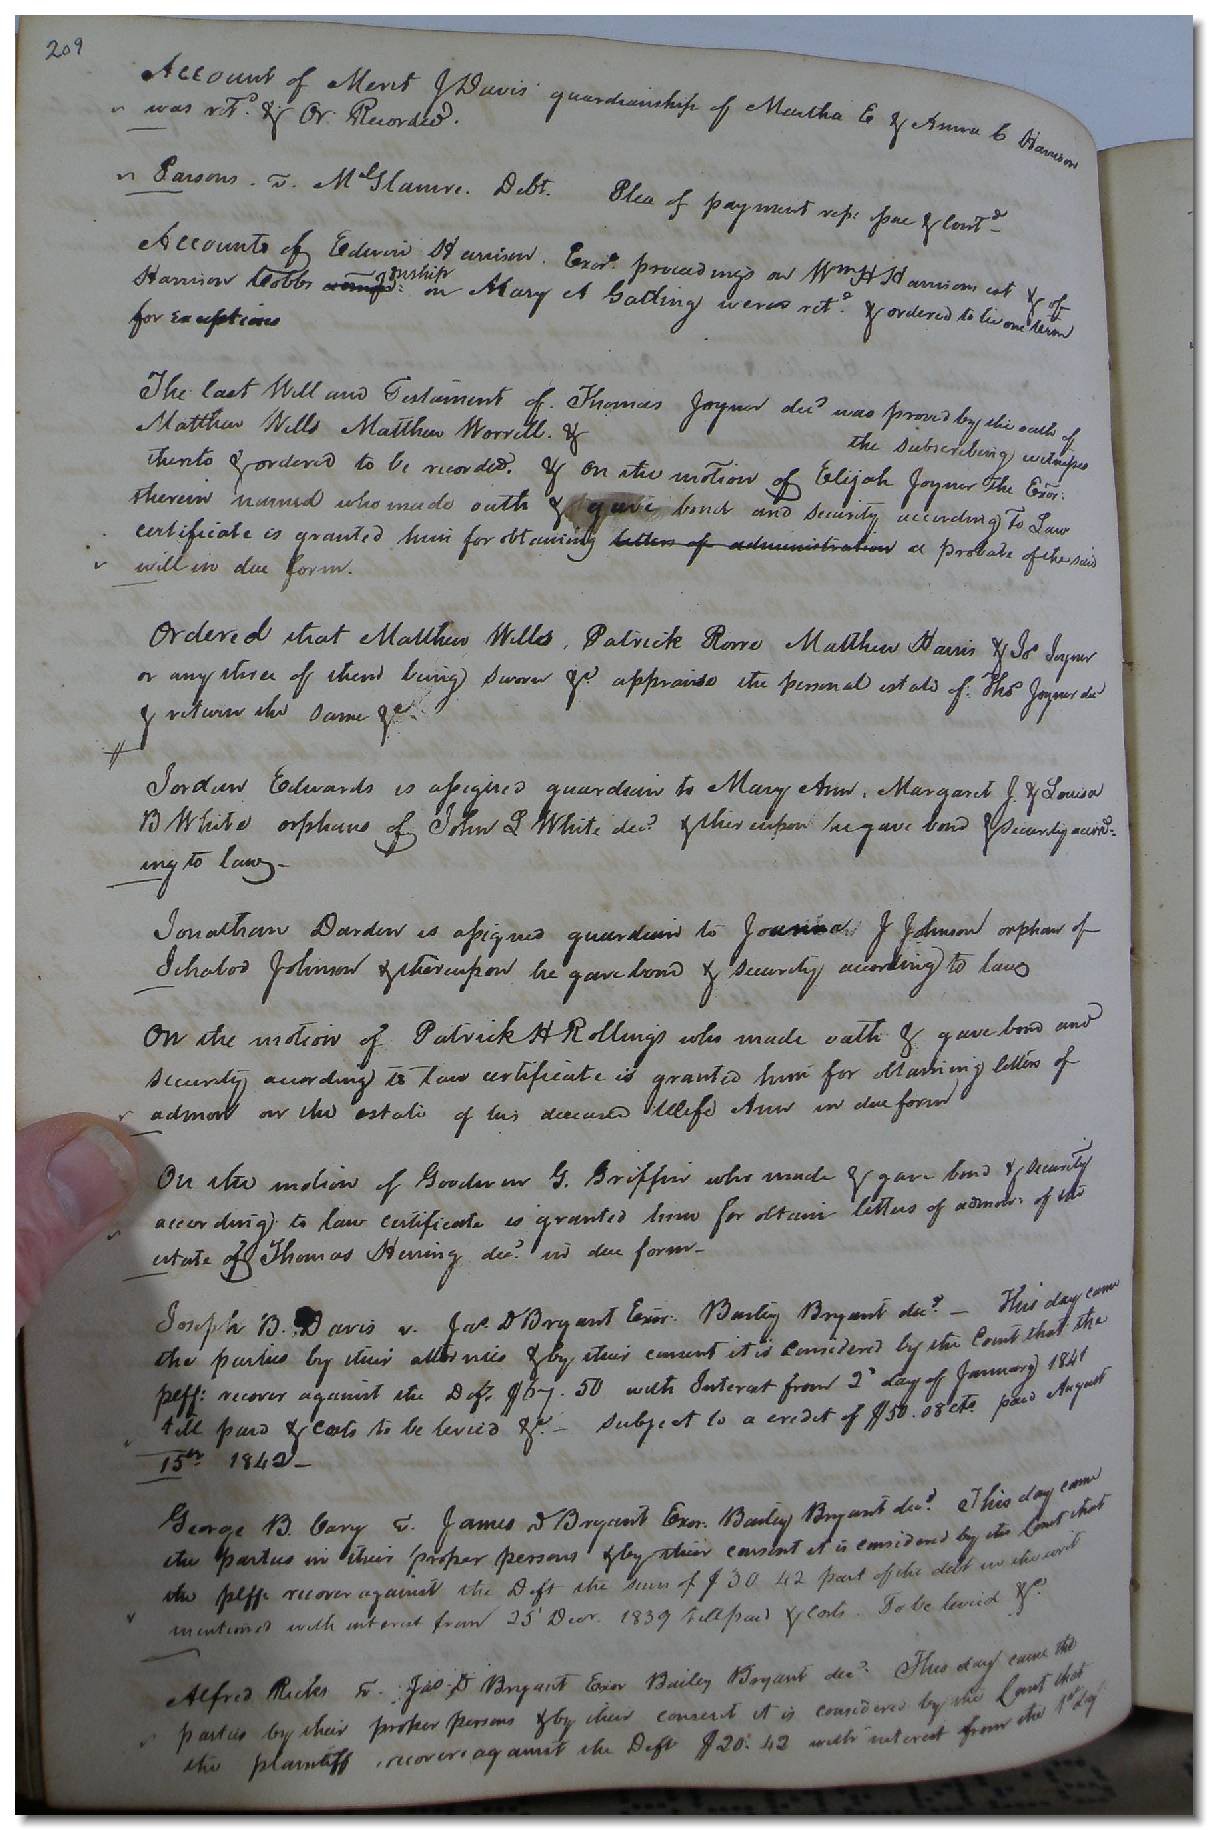 209
Account of Merit J Davis guardianship of Martha E & Anna C Harrison
was retd. & Or Recorded.
Parsons. v. McGlamre. Debt. Plea of payment repn issue & Contd
Accounts of Edwin Harrison. Exors. proceedings on Wm H Harrisons est & of
Harrison Cobbs gdnship on Mary A Gatling were retd. & ordered to lie one term
for exceptions
The last Will and Testament of. Thomas Joyner decd was proved by the oath of
Matthew Wills Matthew Worrell. & the subscribing witnesses
thereto & ordered to be recorded. & On the motion of Elijah Joyner the Exor.
therein named who made oath & gave bond and security according To Law
certificate is granted him for obtaining letters of administration a probate of the said
will in due form.
Ordered that Matthew Wills, Patrick Rowe Matthew Harris & Jos Joyner
or any three of them being sworn &c appraise the personal estate of. Thos Joyner decd
& return the same &c.
Jordan Edwards is assigned guardian to Mary Ann, Margaret J. & Louisa
B White orphans of John L White decd. & thereupon he gave bond & security accord-
ing to law-
Jonathan Darden is assigned guardian to Joanna J Johnson orphan of
Ichabod Johnson & thereupon he gave bond & security according to law
On the motion of Patrick H Rollings who made oath & gave bond and
security according to law certificate is granted him for obtaining letters of
admon on the estate of his deceased Wife Ann in due form
On the motion of Goodwin G. Griffin who made & gave bond & security
according to law certificate is granted him for obtain letters of admon: of the
estate of Thomas Herring decd. in due form-
Joseph B. Davis v. Jas. D Bryant Exor. Bailey Bryant decd. — This day came
the parties by their attornies & by their consent it is Considered by the Court that the
plff: recover against the Deft. $67. 50 with Interest from 2d day of January 1841
till paid & Costs to be levied &c. — subject to a credit of $50.08 cts paid August
15th 1842—
George B. Cary v. James D Bryant Exor. Bailey Bryant decd. This day came
the parties in their proper persons & by their consent it is considered by the Court that
the plff. recover against the Deft the sum of $30 42 part of the debt in the writ
mentioned with interest from 25th Decr. 1839 till paid & Costs. To be levied &c.
Alfred Ricks v. Jas. D Bryant Exor Bailey Bryant decd. This day came the
parties by their proper persons & by their consent it is considered by the Court that
the plaintiff recover against the Deft $20. 42 with interest from the 1st day